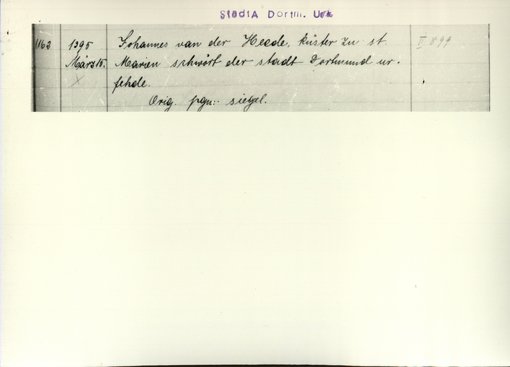 StadtA Dortm. Urk
1163 1395 Johannes van der Heede, küster zu st. II 899
März 15. Marien schwört der stadt Dortmund ur-
fehde.
Orig. pgm. siegel.